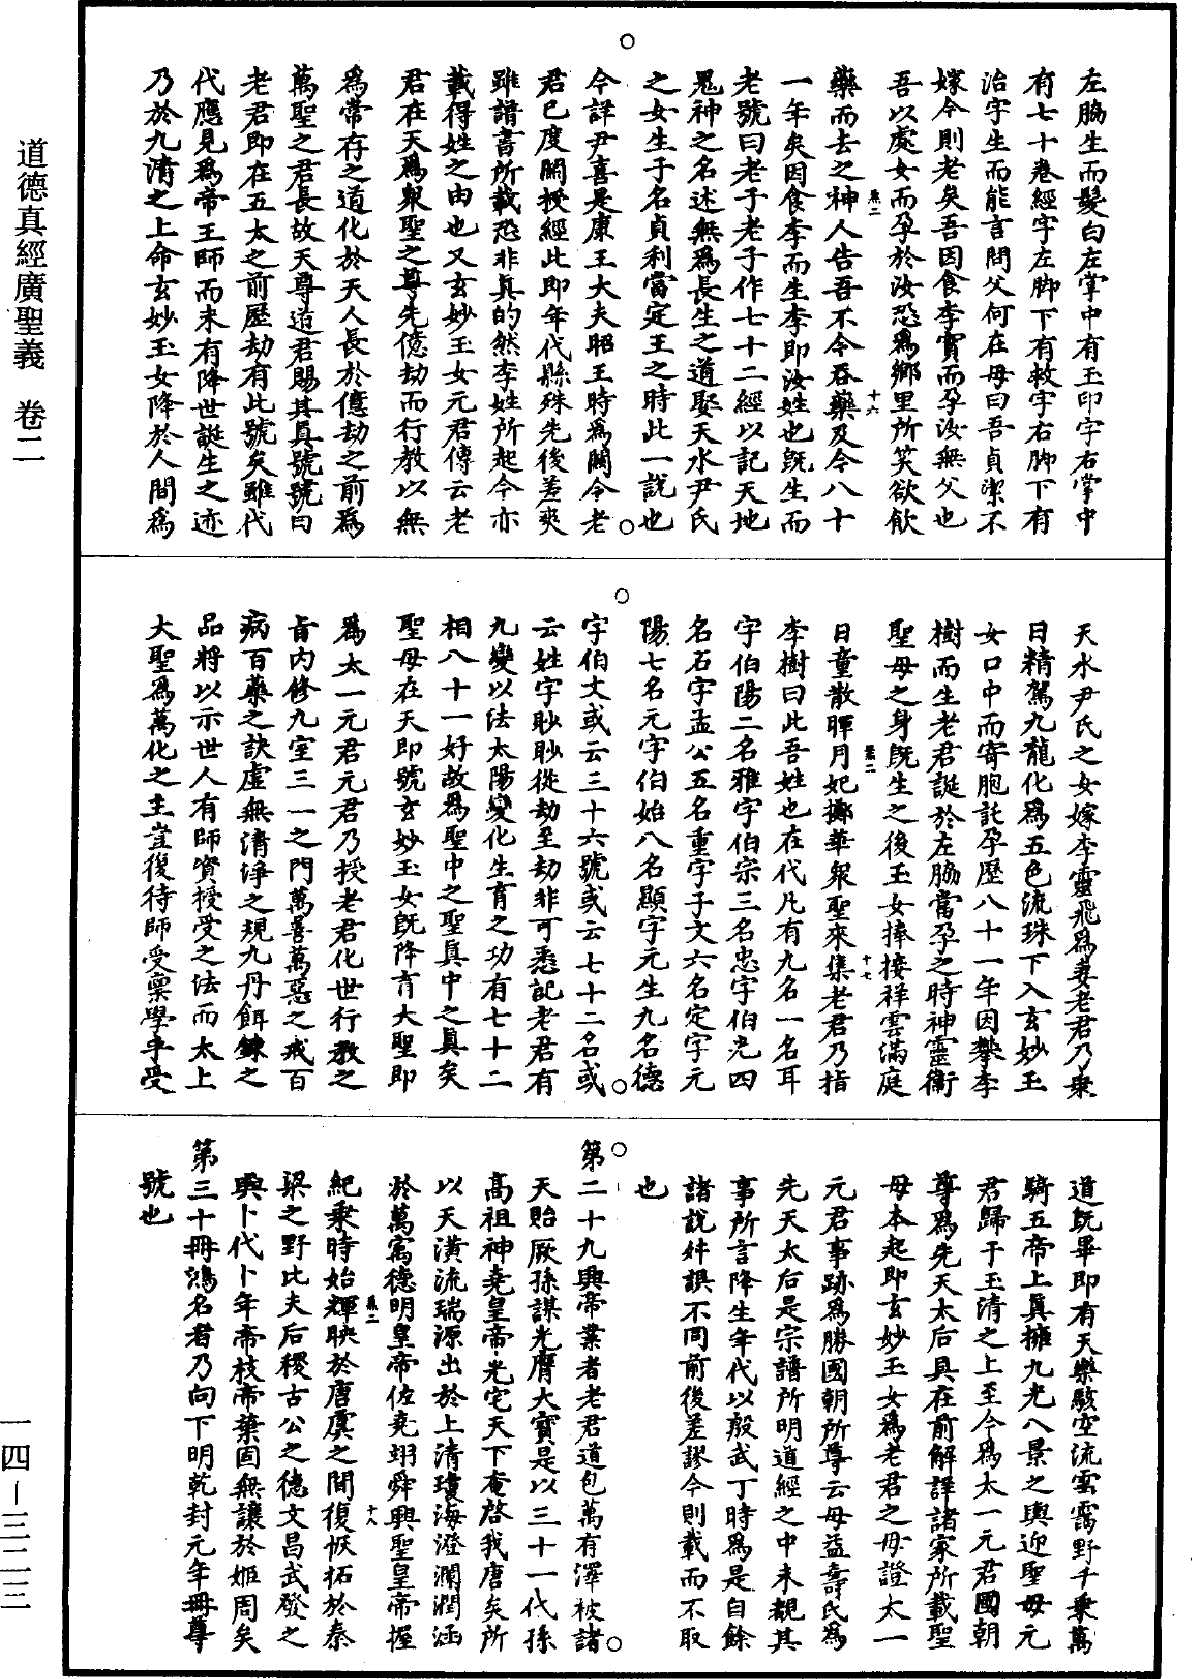 道德真經廣聖義　卷二
左脇生而髮白左掌中有玉印字右掌中
有七十卷經字左脚下有敕字右脚下有
治字生而能言問父何在母曰吾貞潔不
嫁今則老矣吾因食李實而孕汝無父也
吾以處女而孕於汝恐爲鄉里所笑欲飲
藥而去之神人告吾不令吞藥及今八十
卷二　十六
一年矣因食李而生李即汝姓也既生而
老號曰老子老子作七十二經以記天地
鬼神之名述無爲長生之道娶天水尹氏
之女生子名貞利當定王之時此一說也
今詳尹喜是康王大夫昭王時爲關令老
君已度關授經此即年代縣殊先後差爽
雖譜書所載恐非真的然李姓所起今亦
載得姓之由也又玄妙玉女元君傳云老
君在天爲衆聖之尊先億劫而行教以無
爲常存之道化於天人長於億劫之前爲
萬聖之君長故天尊道君賜其真號號曰
老君即在五太之前歷劫有此號矣雖代
代應見爲帝王師而未有降世誕生之迹
乃於九清之上命玄妙玉女降於人間爲
天水尹氏之女嫁李靈飛爲妻老君乃乘
日精駕九龍化爲五色流珠下入玄妙玉
女口中而寄胞託孕歷八十一年因攀李
樹而生老君誕於左脇當孕之時神靈衛
聖母之身既生之後玉女捧接祥雲滿庭
日童散暉月妃擲華衆聖來集老君乃指
卷二　十七
李樹曰此吾姓也在代凡有九名一名耳
字伯陽二名雅字伯宗三名忠字伯光四
名石字孟公五名重字子文六名定字元
陽七名元字伯始八名顯字元生九名德
字伯文或云三十六號或云七十二名或
云姓字眇眇從劫至劫非可悉記老君有
九變以法太陽變化生育之功有七十二
相八十一好故爲聖中之聖真中之真矣
聖母在天即號玄妙玉女既降育大聖即
爲太一元君元君乃授老君化世行教之
旨內修九室三一之門萬善萬惡之戒百
病百藥之訣虛無清淨之規九丹餌鍊之
品將以示世人有師資授受之法而太上
大聖爲萬化之主豈復待師受稟學乎受
道既畢即有天樂駭空流雲靄野千乘萬
騎五帝上真擁九光八景之輿迎聖母元
君歸于玉清之上至今爲太一元君國朝
尊爲先天太后具在前解詳諸家所載聖
母本起即玄妙玉女爲老君之母證太一
元君事跡爲勝國朝所尊云母益壽氏爲
先天太后是宗譜所明道經之中未覩其
事所言降生年代以殷武丁時爲是自餘
諸說舛誤不同前後差謬今則載而不取
也
第二十九興帝業者老君道包萬有澤被諸
天貽厥孫謀光膺大寶是以三十一代孫
高祖神堯皇帝光宅天下奄啓我唐矣所
以天潢流瑞源出於上清瓊海澄瀾潤涵
於萬寓德明皇帝佐堯翊舜興聖皇帝握
卷二　十八
紀乘時始輝映於唐虞之間復恢拓於秦
梁之野比夫后稷古公之德文昌武發之
興卜代卜年帝枝帝葉固無讓於姬周矣
第三十冊鴻名者乃向下明乾封元年冊尊
號也
一四－三二三